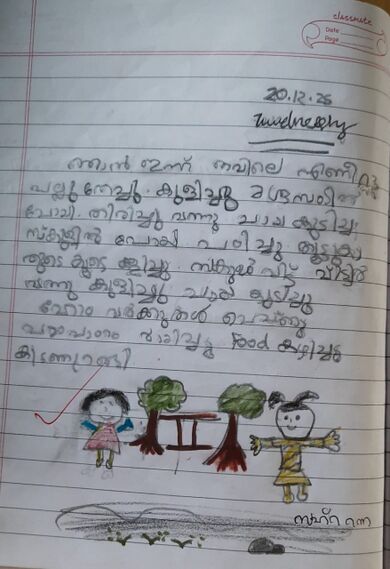 classmate
Date
Page
20.12.25
ഞാൻ ഇന്ന് രാവിലെ എണീറ്റു
പല്ലു തേച്ചു. കുളിച്ചു മദ്രസയിൽ
പോയി. തിരിച്ചു വന്നു ചായ കുടിച്ചു
സ്കൂളിൽ പോയി പഠിച്ചു കൂട്ടുകാ
രുടെ കൂടെ കളിച്ചു. സ്കൂൾ വിട്ട് വീട്ടിൽ
വന്നു കുളിച്ചു ചായ കുടിച്ചു
ഹോം വർക്കുകൾ ചെയ്തു
പാഠഭാഗം വായിച്ചു food കഴിച്ചു
കിടന്നുറങ്ങി